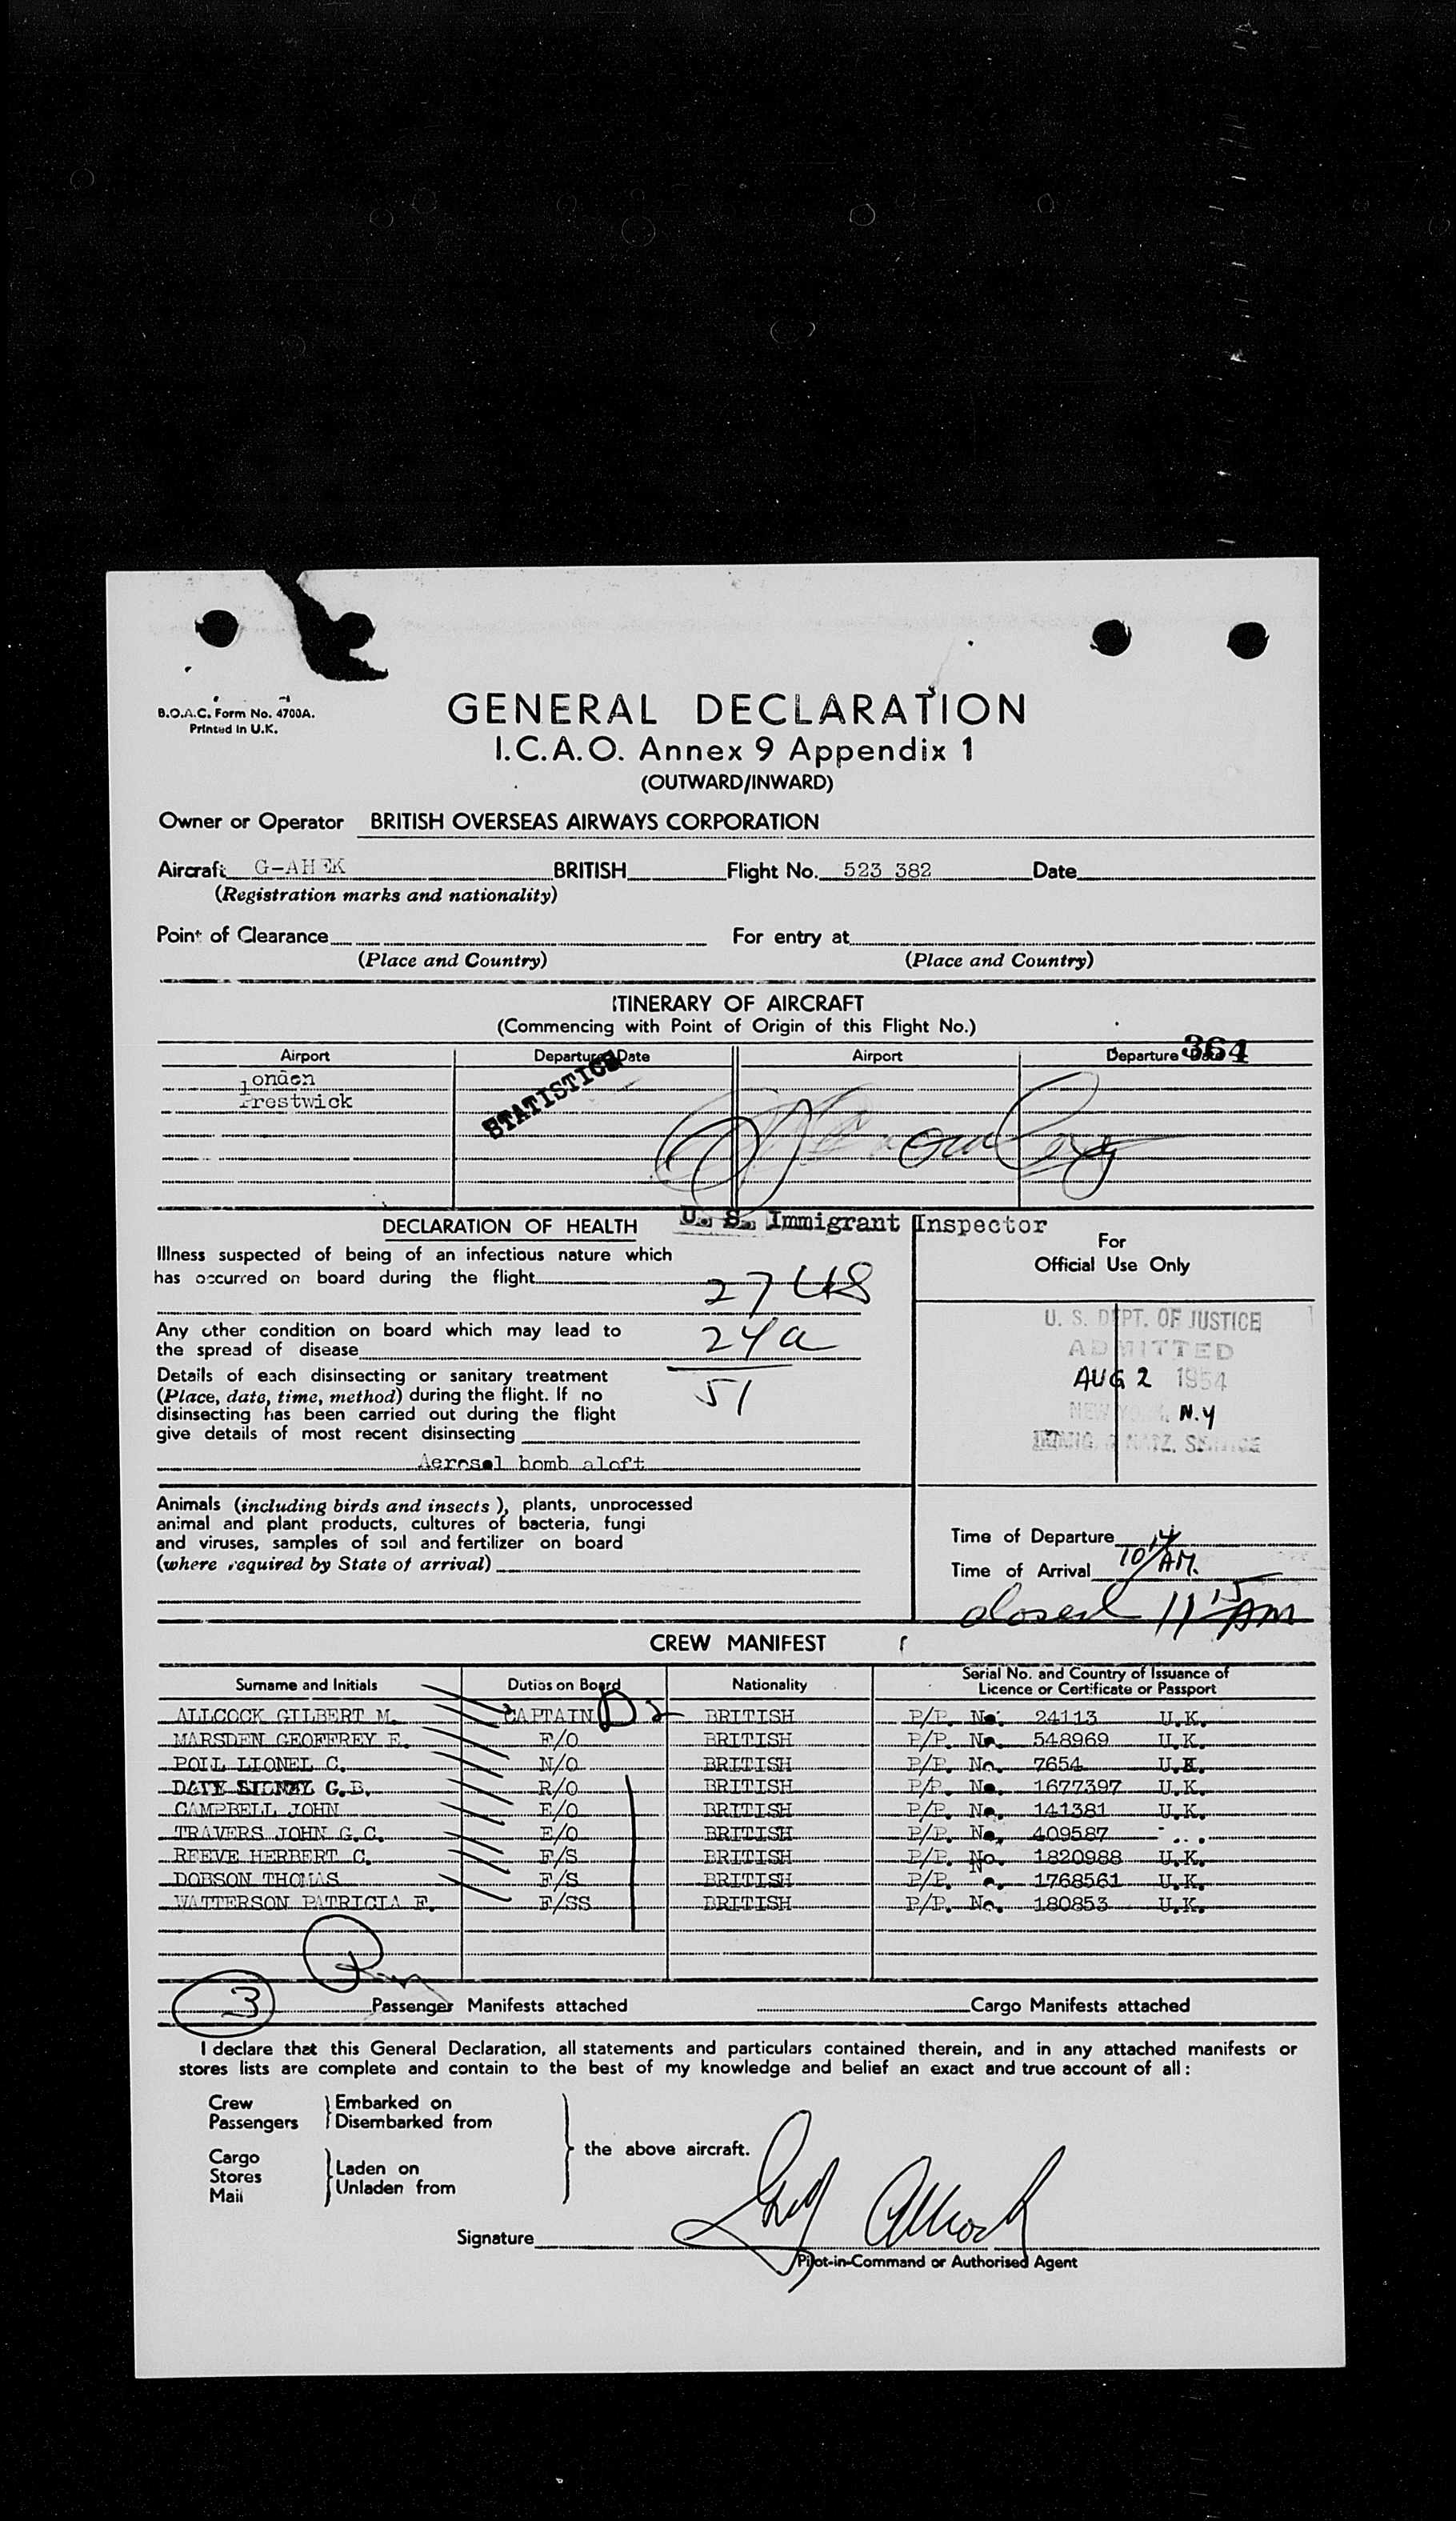 B.O.A.C. Form No. 4700A.
Printed in U.K.
GENERAL DECLARATION
I.C.A.O. Annex 9 Appendix 1
(OUTWARD/INWARD)
Owner or Operator BRITISH OVERSEAS AIRWAYS CORPORATION
Aircraft G-AHEK BRITISH Flight No. 523 382 Date
(Registration marks and nationality)
Point of Clearance For entry at
(Place and Country) (Place and Country)
ITINERARY OF AIRCRAFT
(Commencing with Point of Origin of this Flight No.)
364
Airport Departure Date Airport Departure
onden
Prestwick
STATISTICS
U. S. Immigrant Inspector
DECLARATION OF HEALTH
For
Official Use Only
Illness suspected of being of an infectious nature which
has occurred on board during the flight
27 US
Any other condition on board which may lead to
the spread of disease
24 a
51
Details of each disinsecting or sanitary treatment
(Place, date, time, method) during the flight. If no
disinsecting has been carried out during the flight
give details of most recent disinsecting
Aerosol bomb aloft
U. S. DEPT. OF JUSTICE
ADMITTED
AUG 2 1954
NEW YORK, N.Y
IMMIG. & NATZ. SERVICE
Animals (including birds and insects), plants, unprocessed
animal and plant products, cultures of bacteria, fungi
and viruses, samples of soil and fertilizer on board
(where required by State of arrival)
Time of Departure
Time of Arrival 10 14 AM.
closed 11 15 AM
CREW MANIFEST
Surname and Initials Duties on Board Nationality Serial No. and Country of Issuance of
Licence or Certificate or Passport
ALLCOCK GILBERT M. CAPTAIN D 2 BRITISH P/P. No. 24113 U.K.
MARSDEN GEOFFREY E. F/O BRITISH P/P. No. 548969 U.K.
POLL LIONEL C. N/O BRITISH P/P. No. 7654 U.K.
G.B. R/O BRITISH P/P. No. 1677397 U.K.
CAMPBELL JOHN E/O BRITISH P/P. No. 141381 U.K.
TRAVERS JOHN G.C. E/O BRITISH P/P. No. 409587
REEVE HERBERT C. F/S BRITISH P/P. No. 1820988 U.K.
DOBSON THOMAS F/S BRITISH P/P. 1768561 U.K.
WATTERSON PATRICIA E. F/SS BRITISH P/P. No. 180853 U.K.
3 Passenger Manifests attached Cargo Manifests attached
I declare that this General Declaration, all statements and particulars contained therein, and in any attached manifests or
stores lists are complete and contain to the best of my knowledge and belief an exact and true account of all:
Crew
Passengers
Embarked on
Disembarked from
Cargo
Stores
Mail
Laden on
Unladen from
the above aircraft.
Signature Allcock
Pilot-in-Command or Authorised Agent